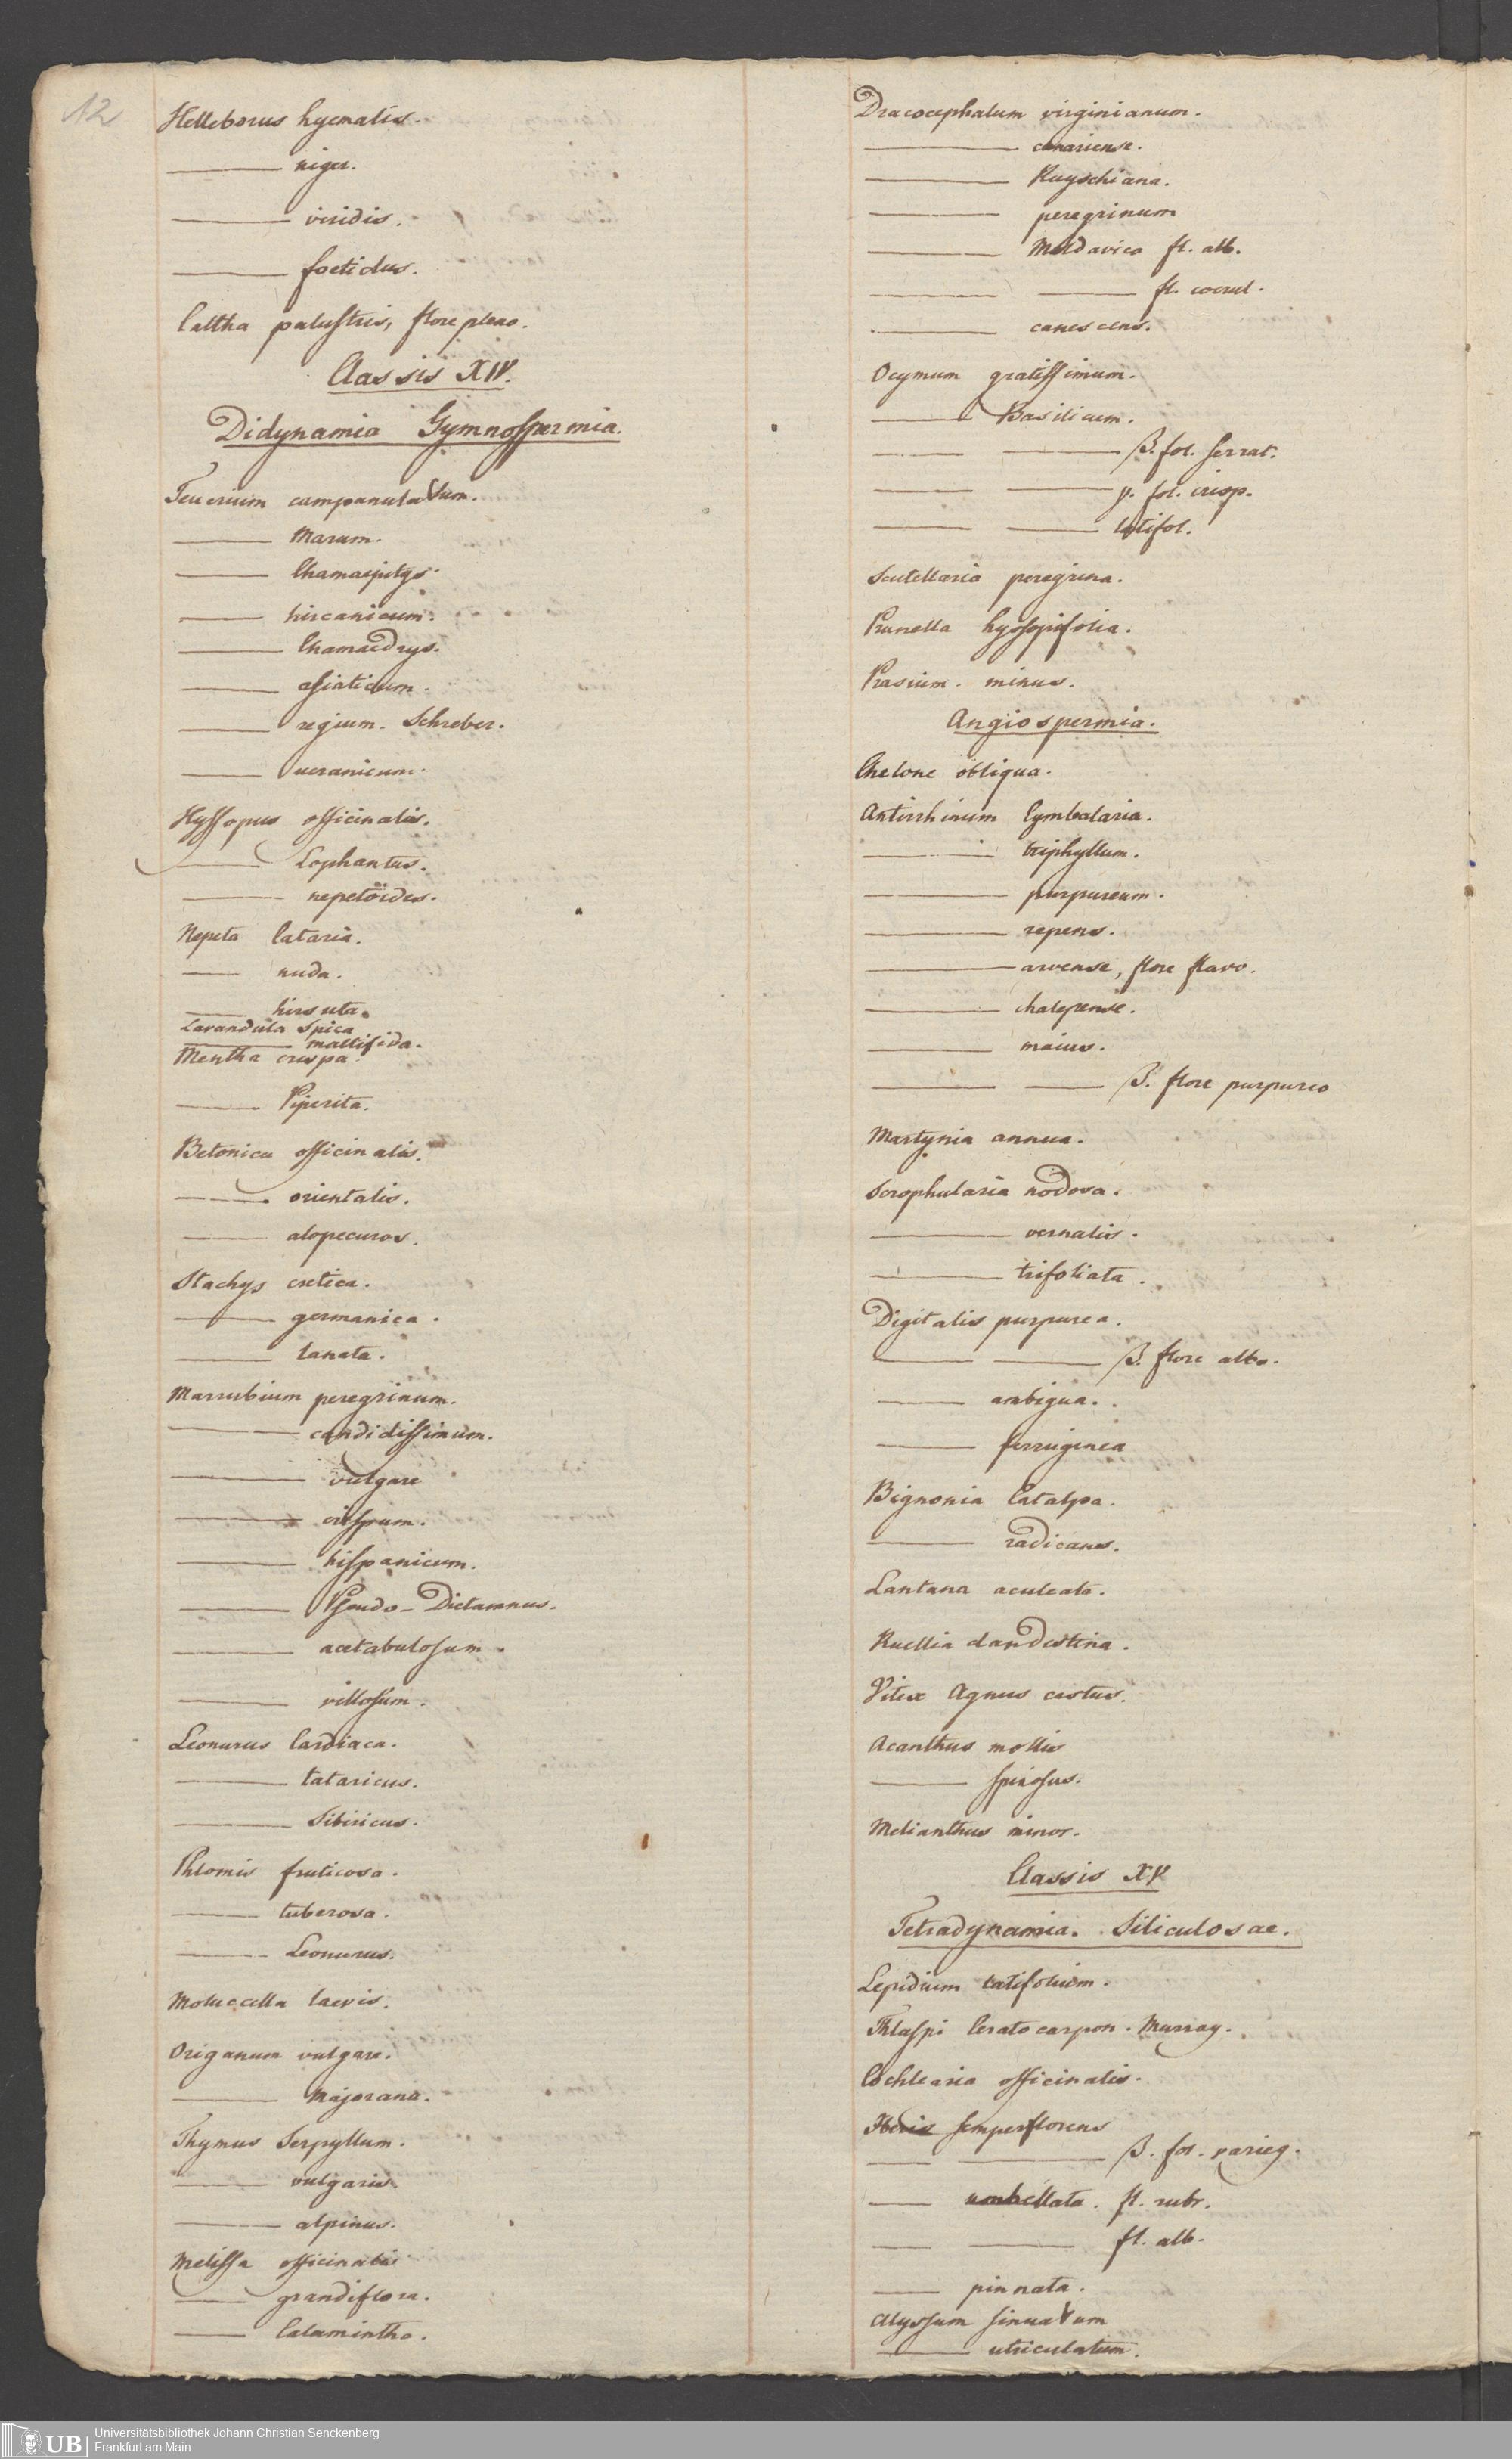 12
Helleborus hyemalis.
——— niger.
——— viridis.
——— foetidus.
Caltha palustris, flore pleno.
Classis XIV.
Didynamia Gymnospermia.
Teucrium campanulatum.
——— Marum.
——— Chamaepitys.
——— hircanicum.
——— Chamaedrys.
——— asiaticum.
——— regium. Schreber.
——— ucranicum.
Hyssopus officinalis.
——— Lophantus.
——— nepetoïdes.
Nepeta Cataria.
——— nuda.
——— hirsuta.
Lavandula Spica
——— multifida.
Mentha crispa.
——— Piperita.
Betonica officinalis.
——— orientalis.
——— alopecuros.
Stachys cretica.
——— germanica.
——— lanata.
Marrubium peregrinum.
——— candidissimum.
——— vulgare
——— crispum.
——— hispanicum.
——— Pseudo-Dictamnus.
——— acetabulosum.
——— villosum.
Leonurus Cardiaca.
——— tataricus.
——— Sibiricus.
Phlomis fruticosa.
——— tuberosa.
——— Leonurus.
Moluccella laevis.
Origanum vulgare.
——— Majorana.
Thymus Serpyllum.
——— vulgaris.
——— alpinus.
Melissa officinalis
——— grandiflora.
——— Calamintha.
Dracocephalum virginianum.
——— canariense.
——— Ruyschiana.
——— peregrinum
——— Moldavica fl. alb.
——— ——— fl. coerul.
——— canescens.
Ocymum gratissimum.
——— Basilicum.
——— ——— β. fol. serrat.
——— ——— γ. fol. crisp.
——— ——— latifol.
Scutellaria peregrina.
Prunella hyssopifolia.
Prasium. minus.
Angiospermia.
Chelone obliqua.
Antirrhinum Cymbalaria.
——— triphyllum.
——— purpureum.
——— repens.
——— arvense, flore flavo.
——— chalepense.
——— maius.
——— ——— β. flore purpureo
Martynia annua.
Scrophularia nodosa.
——— vernalis.
——— trifoliata.
Digitalis purpurea.
——— ——— β. flore albo.
——— ambigua.
——— ferruginea
Bignonia Catalpa.
——— radicans.
Lantana aculeata.
Ruellia clandestina.
Vitex Agnus castus.
Acanthus mollis
——— spinosus.
Melianthus minor.
Classis XV
Tetradynamia. Siliculosae.
Lepidium latifolium.
Thlaspi Ceratocarpon. Murray.
Cochlearia officinalis.
Iberis semperflorens
——— ——— β. fol. varieg.
——— umbellata. fl. rubr.
——— ——— fl. alb.
——— pinnata.
Alyssum sinuatum
——— utriculatum.
UB
Universitätsbibliothek Johann Christian Senckenberg
Frankfurt am Main